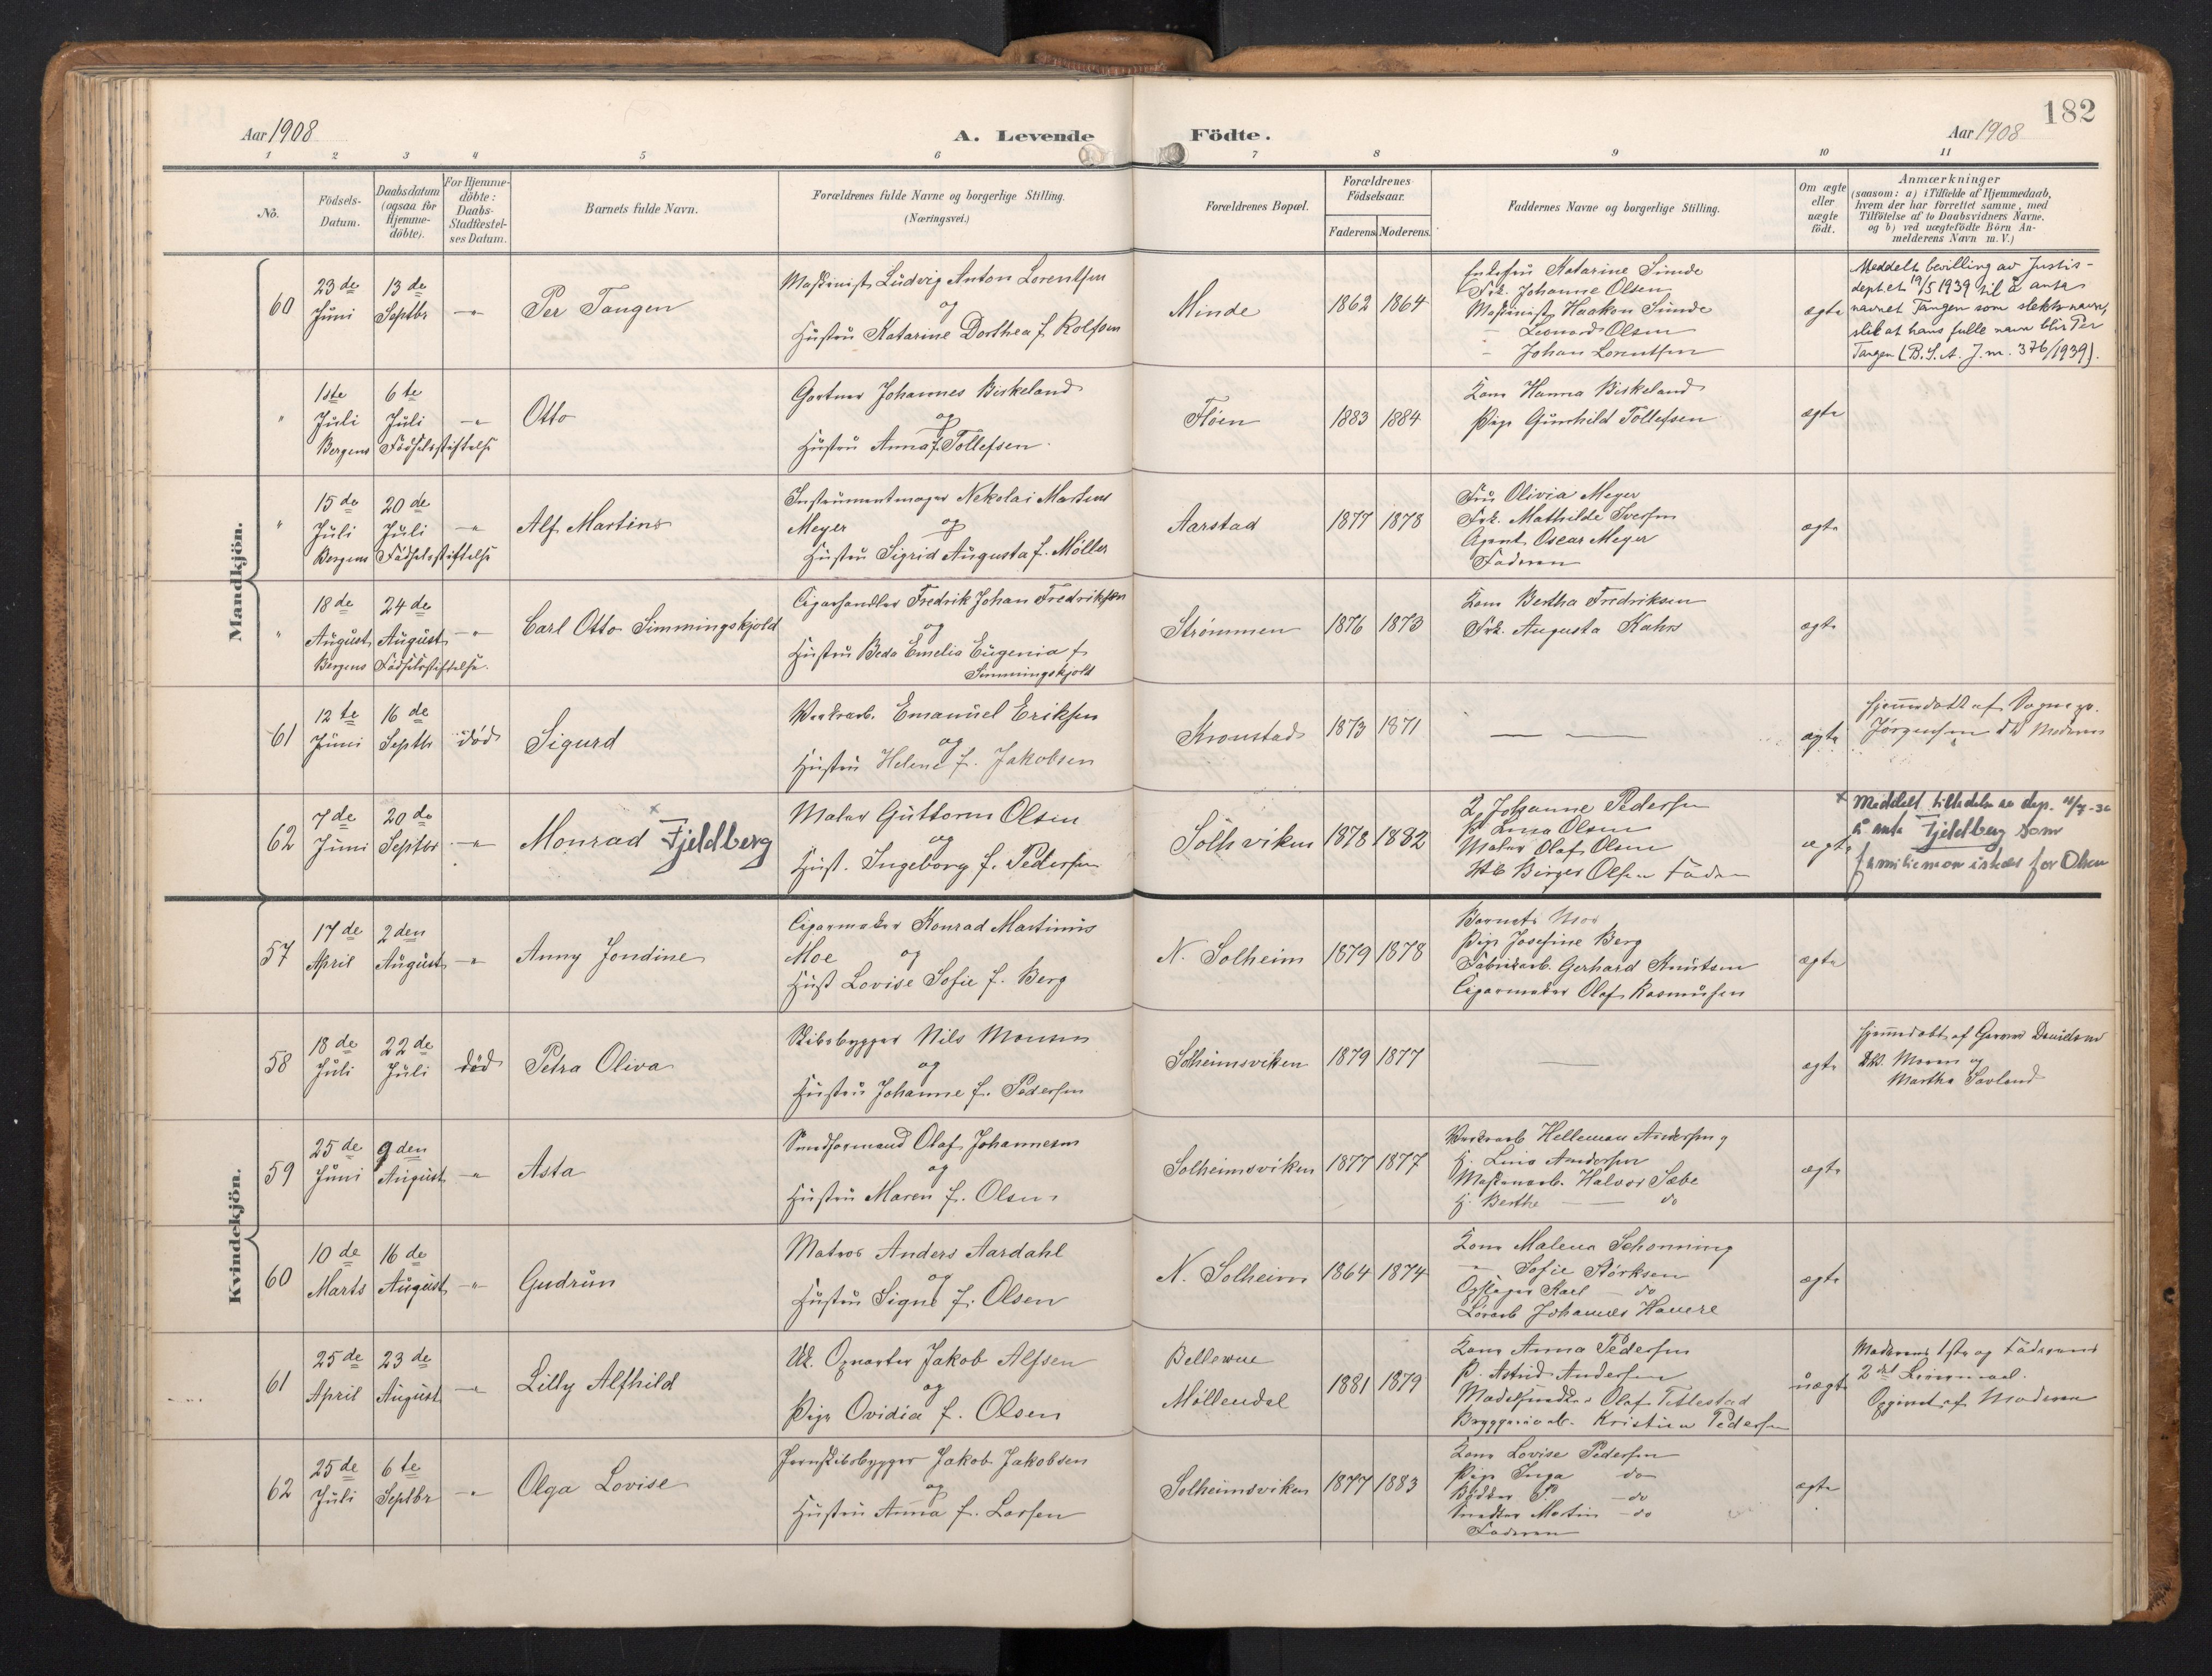 182
Aar 1908
A. Levende Födte.
Aar 1908
1 2 3 4 5 6 7 8 9 10 11
No.
Födsels-Datum.
Daabsdatum (ogsaa for Hjemme-döbte).
For Hjemme-döbte: Daabs-Stadfæstel-ses Datum.
Barnets fulde Navn.
Forældrenes fulde Navne og borgerlige Stilling.
(Næringsvei.)
Forældrenes Bopæl.
Forældrenes Födselsaar.
Faderens Moderens.
Faddernes Navne og borgerlige Stilling.
Om ægte eller uægte födt.
Anmærkninger
(saasom: a) i Tilfælde af Hjemmedaab,
hvem der har forrettet samme, med
Tilföielse af to Daabsvidners Navne.
og b) ved uægtefödte Börn An-
melderens Navn m. V.)
Mandkjön.
60
23de Juni
13de Septbr
Per Tangen
Maskinist Ludvig Anton Lorentsen
og
Hustru Katarine Dorthea f. Rolfsen
Minde
1862 1864
Enkefru Katarine Sunde
Frk. Johanne Olsen
Maskinist Haakon Sunde
- Leonard Olsen
- Johan Lorentsen
ægte
Meddelt bevilling av Justis-
dept et 19/5 1939 til å anta
navnet Tangen som slektsnavn,
slik at hans fulle navn blir Per
Tangen (B.S.A. J.nr. 376/1939).
"
1ste Juli
6te Juli
Bergens Fødselsstiftelse
Otto
Gartner Johannes Birkeland
og
Hustru Anna f. Tollefsen
Fløen
1883 1884
Kone Hanna Birkeland
Pige Gunhild Tollefsen
ægte
"
15de Juli
20de Juli
Bergens Fødselsstiftelse
Alf Martins
Instrumentmager Nekolai Martens
Meyer og
Hustru Sigrid Augusta f. Møller
Aarstad
1877 1878
Fru Olivia Meyer
Frk. Mathilde Iversen
Agent Oscar Meyer
Faderen
ægte
"
18de August
24de August
Bergens Fødselsstiftelse.
Carl Otto Simmingskjold
Cigarhandler Fredrik Johan Fredriksen
og
Hustru Beda Emelia Eugenia f.
Simmingskjold
Strømmen
1876 1873
Kone Bertha Fredriksen
Frk. Augusta Kahrs
ægte
61
12te Juni
16de Septbr
død
Sigurd
Verksarb. Emanuel Eriksen
og
Hustru Helene f. Jakobsen
Kronstad
1873 1871
ægte
Hjemmedøbt af
Jørgensen
62
7de Juni
20de Septbr
Monrad × Fjeldberg
Maler Guttorm Olsen
og
Hust. Ingeborg f. Pedersen
Solhviken
1878 1882
K. Johanne Pedersen
P. Lina Olsen
Maler Olaf Olsen
Birger Olsen Faderen
ægte
× Meddelt tilladelse av dep.
å anta Fjeldberg som
familienavn istedet for Olsen
Kvindekjön.
57
17de April
2den August
Anny Jondine
Cigarmaker Konrad Martinius
Moe og
Hust Lovise Sofie f. Berg
N. Solheim
1879 1878
Barnets Mor
Pige Josefine Berg
Fabrikarb. Gerhard Knutsen
Cigarmaker Olaf Rasmussen
ægte
58
18de Juli
22de Juli
død
Petra Oliva
Skibsbygger Nils Monsen
og
Hustru Johanne f. Pedersen
Solheimsviken
1879 1877
ægte
Hjemmedøbt af Davidsen
Moren og
Martha
59
25de Juni
9den August
Asta
Olaf Johannesen
og
Hustru Maren f. Olsen
Solheimsviken
1877 1877
Verksarb Andersen og
H. Lina Andersen
Maskinarb. Halvor Sæbe
H. Berthe — do
ægte
60
10de Marts
16de August
Gudrun
Matros Anders Aardahl
og
Hustru Signe f. Olsen
N. Solheim
1864 1874
Kone Malena Schonning
- Sofie Størksen
Karl do
Johannes
ægte
61
25de April
23de August
Lilly Alfhild
Jakob Alfsen
og
Pige Ovidia f. Olsen
Bellevue
Møllendal
1881 1879
Kone Anna Pedersen
P. Astrid Andersen
Olaf Titlestad
Bryggeriarb. Kristian Pedersen
uægte
Moderens 1ste og Faderens
2det Leiermaal.
Opgivet af Moderen
62
25de Juli
6te Septbr
Olga Lovise
Jernskibsbygger Jakob Jakobsen
og
Hustru Anna f. Larsen
Solheimsviken
1877 1883
Kone Lovise Pedersen
Pige Inga do
Bødker P. do
Martin do
Faderen
ægte